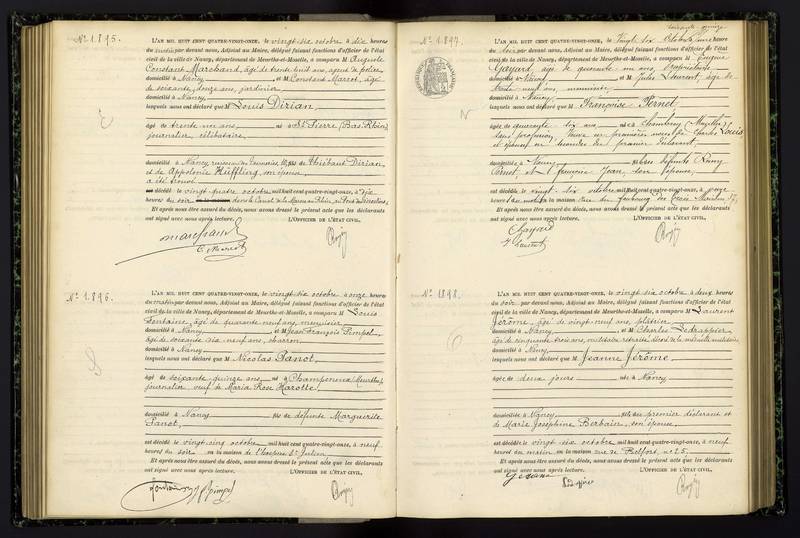 N° 1.895.
L'AN MIL HUIT CENT QUATRE-VINGT-ONZE, le vingt-six octobre à dix heures
du matin par devant nous, Adjoint au Maire, délégué faisant fonctions d'officier de l'état
civil de la ville de Nancy, département de Meurthe-et-Moselle, a comparu M Auguste
Constant Marchand, âgé de trente huit ans, agent de police
domicilié à Nancy et M Constant Marcot, âgé
de soixante douze ans, jardinier
domicilié à Nancy
lesquels nous ont déclaré que M Louis Dirian
âgé de trente un ans né à St Pierre (Bas-Rhin)
journalier célibataire
domicilié à Nancy fils de Thiébaut Dirian,
et de Appolonie Hüffling, son épouse
a été trouvé
décédé le vingt quatre octobre mil huit cent quatre-vingt-onze, à dix
heures du soir dans le Canal de la Marne au Rhin
Et après nous être assuré du décès, nous avons dressé le présent acte que les déclarants
ont signé avec nous après lecture. L'OFFICIER DE L'ÉTAT CIVIL,
Marchand
C. Marcot
N° 1.896.
L'AN MIL HUIT CENT QUATRE-VINGT-ONZE, le vingt six octobre à onze heures
du matin par devant nous, Adjoint au Maire, délégué faisant fonctions d'officier de l'état
civil de la ville de Nancy, département de Meurthe-et-Moselle, a comparu M Louis
Fontaine, âgé de quarante neuf ans, menuisier
domicilié à Nancy et M Jean François Pimpel
âgé de soixante six neuf ans,
domicilié à Nancy
lesquels nous ont déclaré que M Nicolas Sanot
âgé de soixante quinze ans né à Champenoux (Meurthe)
journalier veuf de Maria Rose Harotte
domicilié à Nancy fils de défunte Marguerite
Sanot,
est décédé le vingt cinq octobre mil huit cent quatre-vingt-onze, à neuf
heures du soir en la maison de l'hospice St Julien
Et après nous être assuré du décès, nous avons dressé le présent acte que les déclarants
ont signé avec nous après lecture. L'OFFICIER DE L'ÉTAT CIVIL,
Fontaine Pimpel
N° 1897.
L'AN MIL HUIT CENT QUATRE-VINGT-ONZE, le vingt six octobre à heure
du soir par devant nous, Adjoint au Maire, délégué faisant fonctions d'officier de l'état
civil de la ville de Nancy, département de Meurthe-et-Moselle, a comparu M Eugène
Gayard, âgé de quarante ans,
domicilié à Nancy et M Jules Laurent, âgé de
trente neuf ans, menuisier
domicilié à Nancy
lesquels nous ont déclaré que M Françoise Pernet
âgée de quarante six ans née à Chambrey (Moselle)
sans profession, veuve en premières noces de Charles Louis
et épouse en secondes du premier déclarant
domiciliée à Nancy fille des défunts
Pernet, et de Françoise Jean, son épouse,
est décédée le vingt six octobre mil huit cent quatre-vingt-onze, à onze
heures du matin en la maison rue du faubourg des Trois Maisons 57,
Et après nous être assuré du décès, nous avons dressé le présent acte que les déclarants
ont signé avec nous après lecture. L'OFFICIER DE L'ÉTAT CIVIL,
Gayard
J. Laurent
N° 1898.
L'AN MIL HUIT CENT QUATRE-VINGT-ONZE, le vingt six octobre à deux heures
du soir par devant nous, Adjoint au Maire, délégué faisant fonctions d'officier de l'état
civil de la ville de Nancy, département de Meurthe-et-Moselle, a comparu M Laurent
Jérôme, âgé de vingt neuf ans, plâtrier
domicilié à Nancy et M Charles Ledrappier
âgé de cinquante trois ans, militaire retraité, décoré de la médaille militaire
domicilié à Nancy
lesquels nous ont déclaré que M Jeanne Jérôme
âgée de deux jours née à Nancy
domiciliée à Nancy fille du premier déclarant et
de Marie Joséphine Berbain, son épouse,
est décédée le vingt six octobre mil huit cent quatre-vingt-onze, à neuf
heures du matin en la maison rue de Belfort, n° 25,
Et après nous être assuré du décès, nous avons dressé le présent acte que les déclarants
ont signé avec nous après lecture. L'OFFICIER DE L'ÉTAT CIVIL,